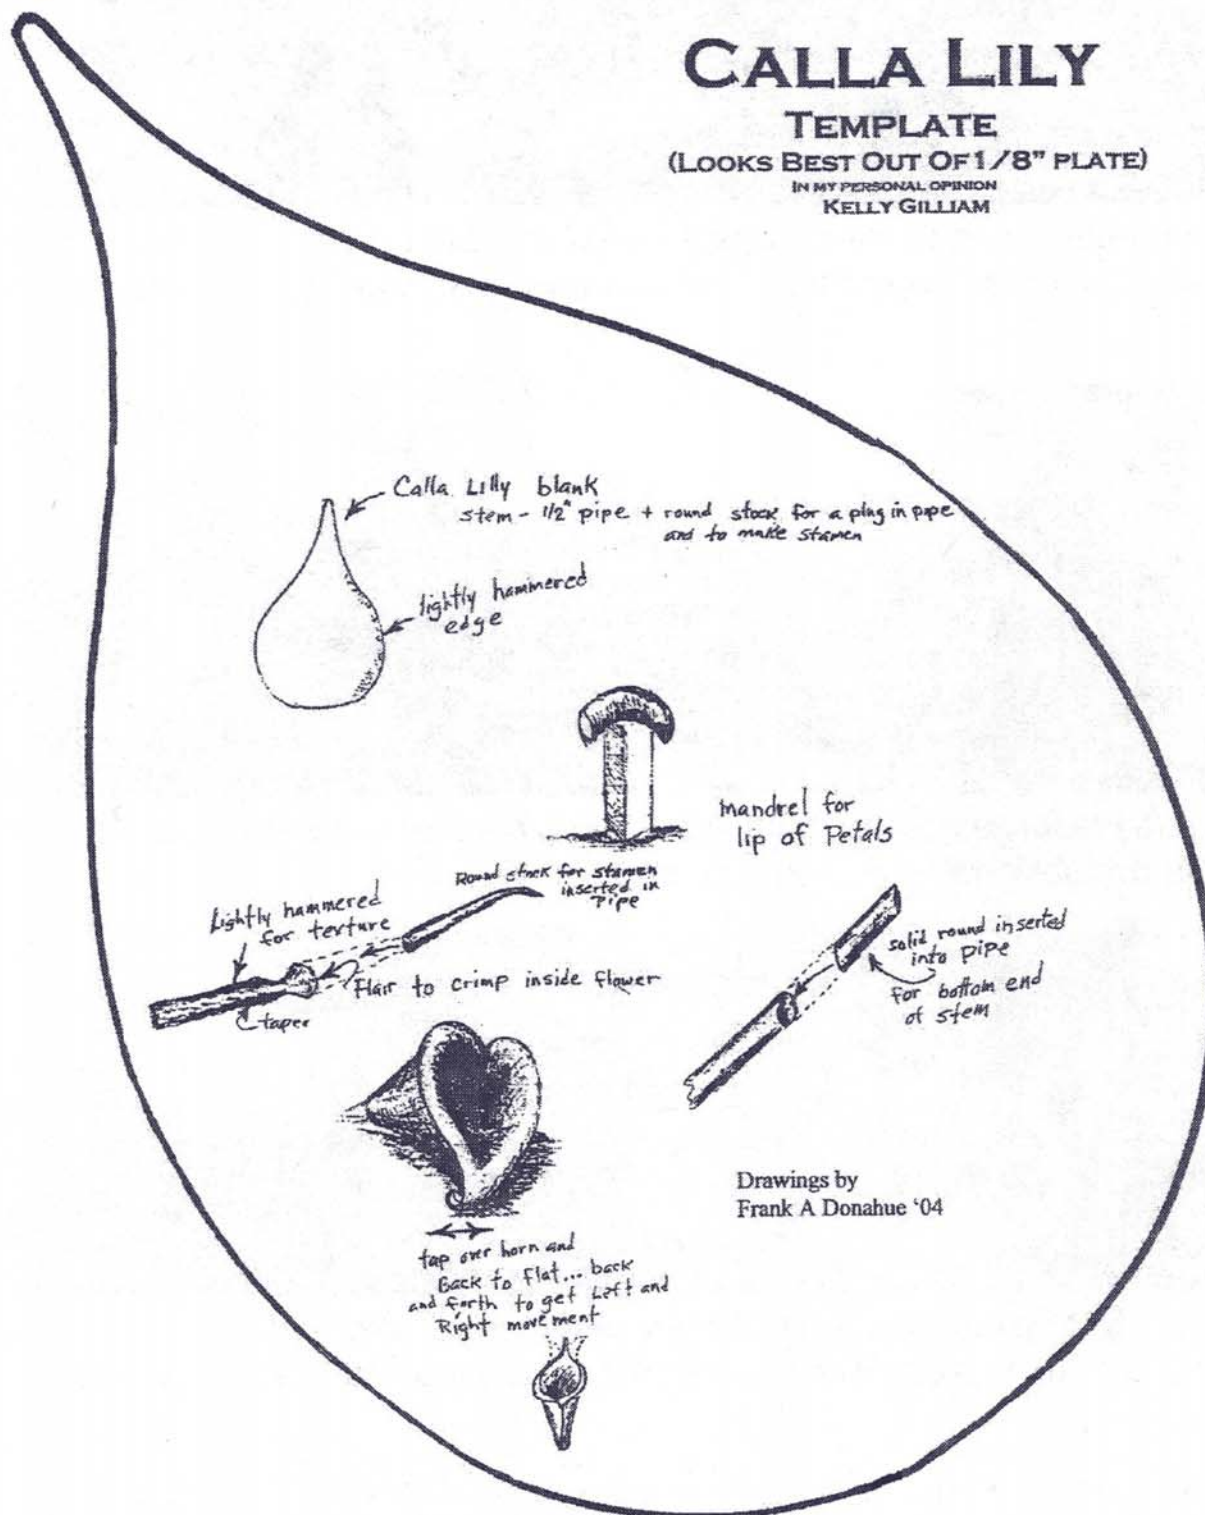 CALLA LILY
TEMPLATE
(LOOKS BEST OUT OF 1/8" PLATE)
IN MY PERSONAL OPINION
KELLY GILLIAM
Calla Lilly blank
stem - 1/2" pipe + round stock for a plug in pipe
and to make stamen
lightly hammered
edge
mandrel for
lip of Petals
Round stock for stamen
inserted in
Pipe
Lightly hammered
for texture
Flair to crimp inside flower
taper
solid round inserted
into pipe
for bottom end
of stem
Drawings by
Frank A Donahue '04
tap over horn and
Back to flat... back
and forth to get Left and
Right movement